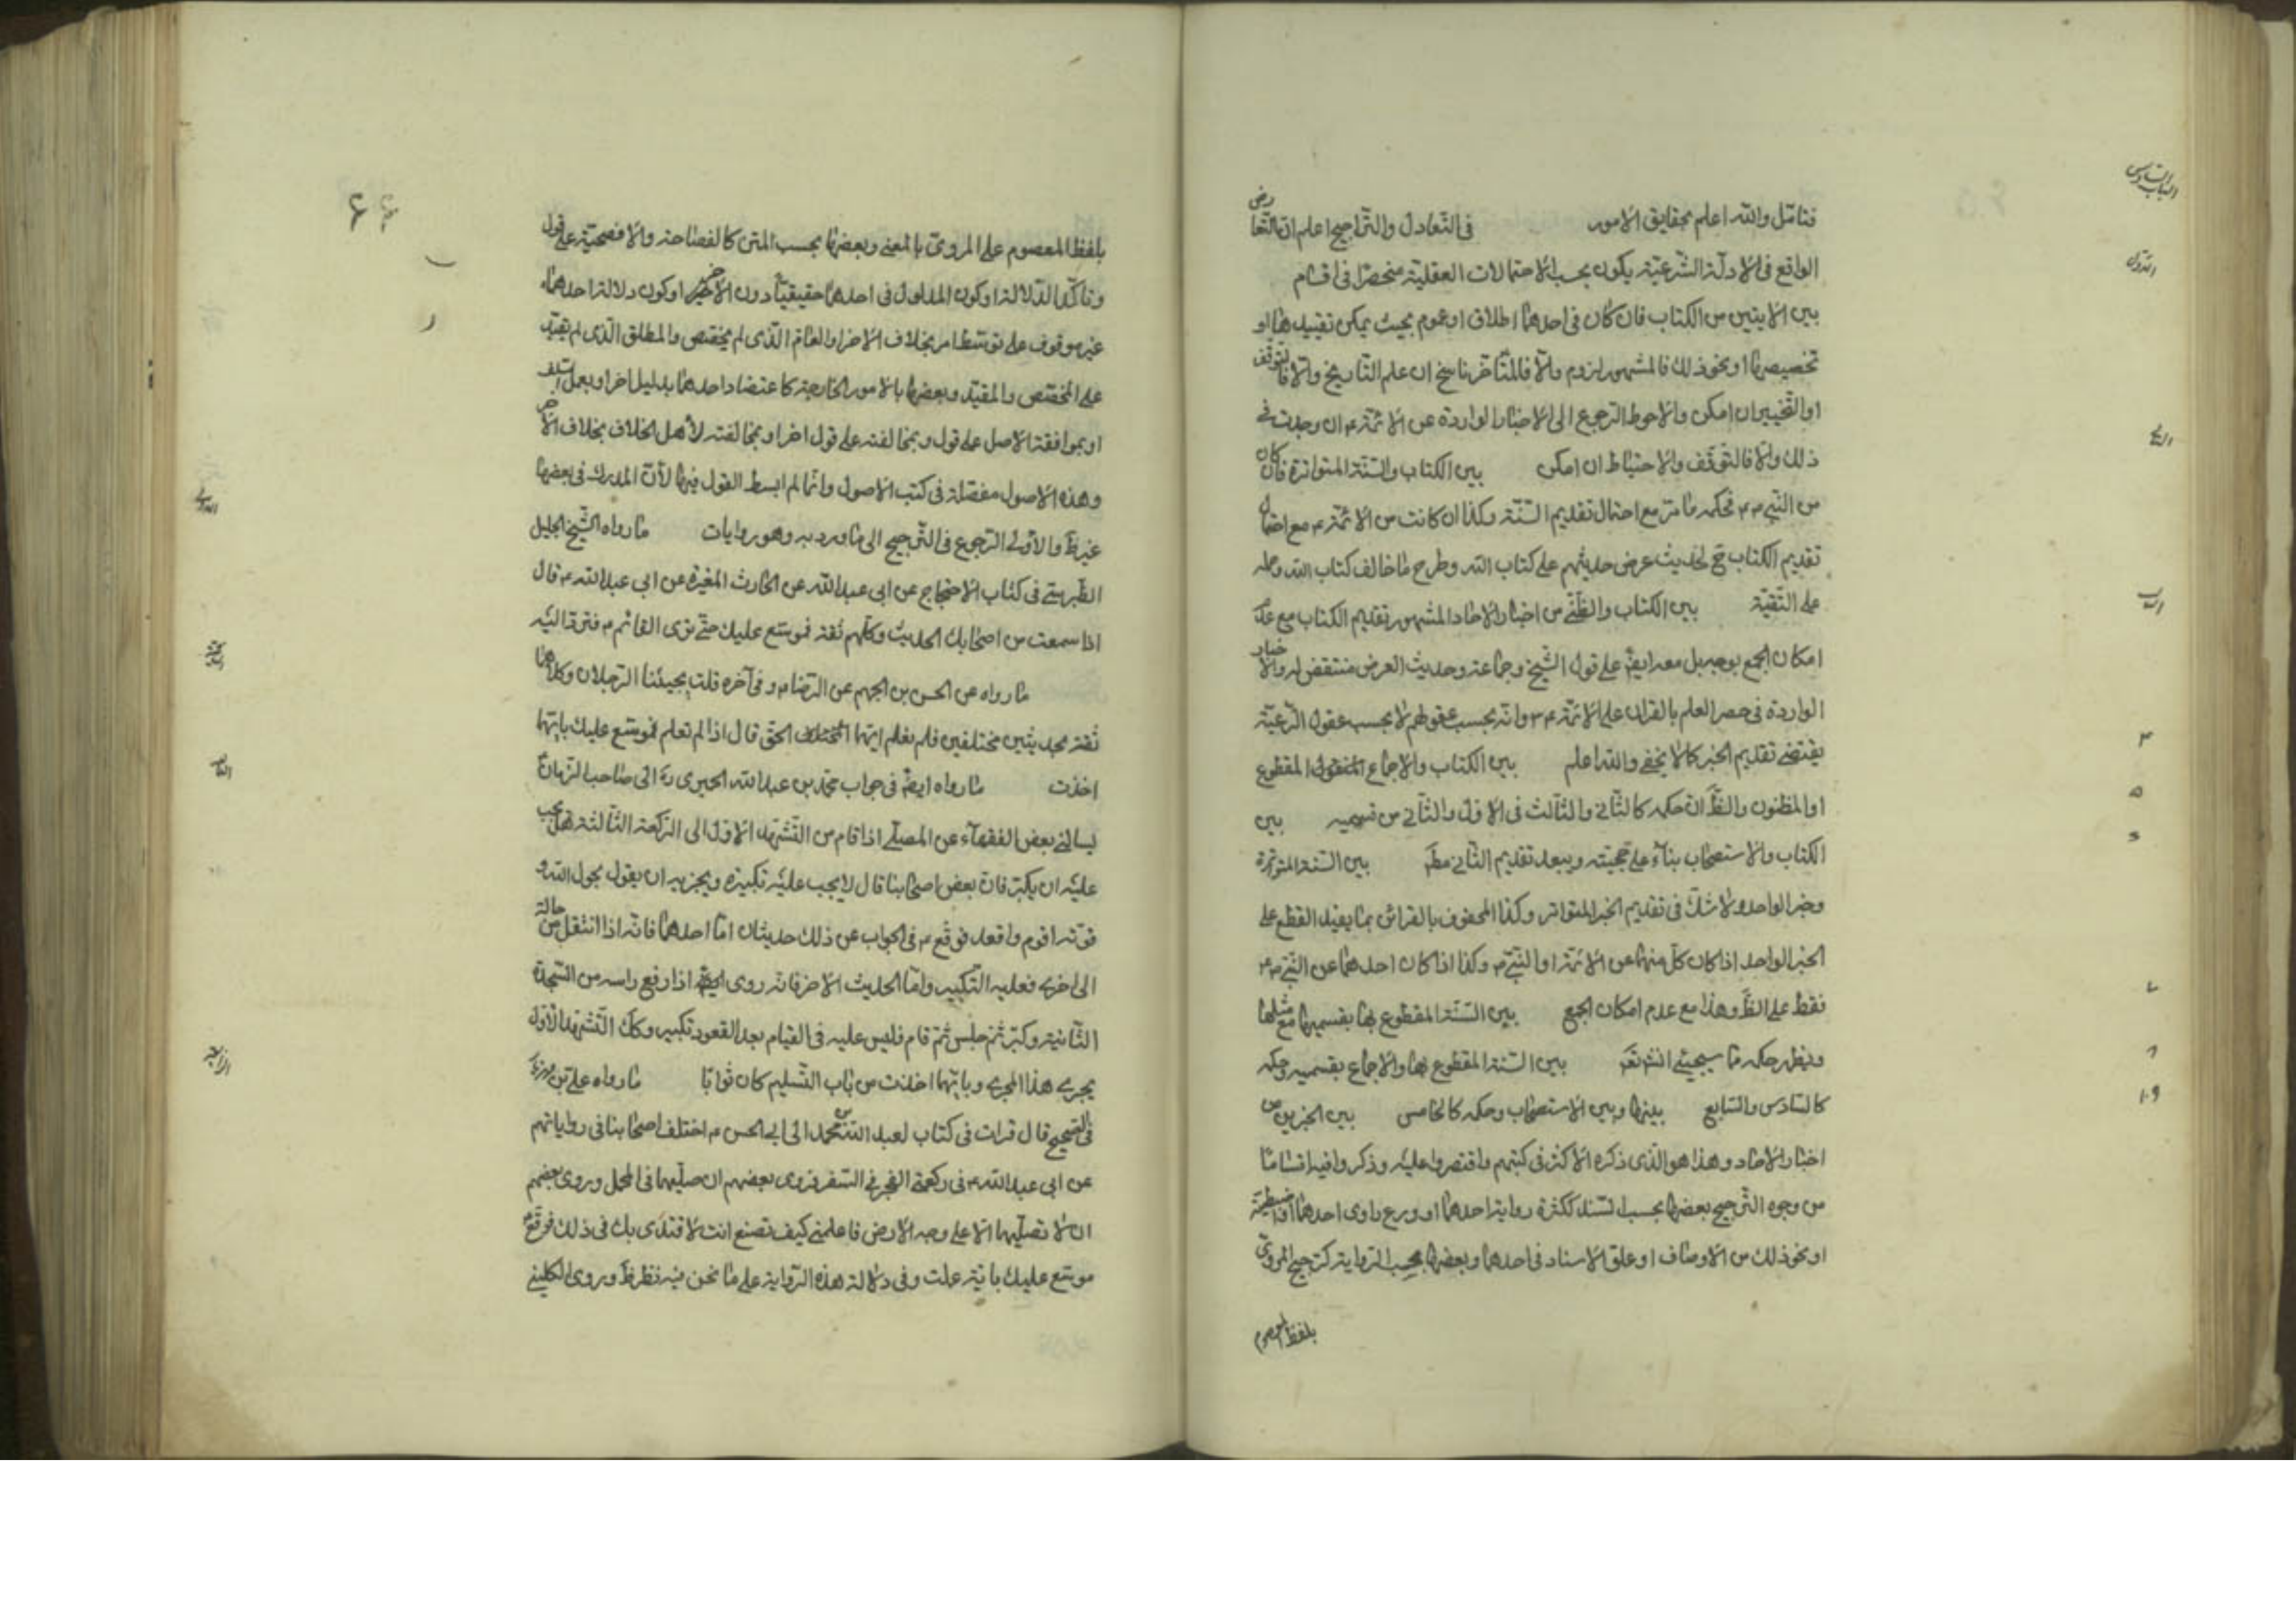 فتأمّل والله اعلم بحقايق الامور في التّعادل والتّراجيح اعلم انّ التّعا
رض
الواقع في الادلّة الشّرعيّة يكون بحسب الاحتمالات العقليّة منحصرا في اقسام
بين الايتين من الكتاب فان كان في احدهما اطلاق او عموم بحيث يمكن تقييدها او
تخصيصها او نحو ذلك فالمشهور لزومه والّا فالمتأخّر ناسخ ان علم التّاريخ والّا فالتّوقف
او التّخيير ان امكن والاحوط الرّجوع الى الاخبار الواردة عن الائمّة ع ان وجدت في
ذلك والّا فالتوقّف والاحتياط ان امكن بين الكتاب والسّنّة المتواترة فان كان
من النّبي ص فحكمه ما مرّ مع احتمال تقديم السّنّة وكذا ان كانت من الائمّة ع مع احتمال
تقديم الكتاب ح لحديث عرض حديثهم على كتاب الله وطرح ما خالف كتاب الله وحمله
على التّقيّة بين الكتاب والظّنّي من اخبار الاحاد المشهور تقديم الكتاب مع عدم
امكان الجمع بوجه بل معه ايضا على قول الشّيخ وجماعة وحديث العرض منتقض له والاخبار
الواردة في حصر العلم بالقران على الائمّة ع وانّه بحسب عقولهم لا بحسب عقول الرّعيّة
يقتضي تقديم الخبر كما لا يخفى والله اعلم بين الكتاب والاجماع المنقول المقطوع
او المظنون والظّ انّ حكمه كالثّاني والثّالث في الاوّل والثّاني من قسميه بين
الكتاب والاستصحاب بناء على حجيّته ويبعد تقديم الثّاني مطّ بين السّنة المتواترة
وخبر الواحد ولا شكّ في تقديم الخبر المتواتر وكذا المحفوف بالقرائن بما يفيد القطع على
الخبر الواحد اذا كان كلّ منهما عن الائمّة او النّبيّ ص وكذا اذا كان احدهما عن النّبيّ ص
فقط على الظّ وهذا مع عدم امكان الجمع بين السّنّة المقطوع بها بقسميها مع مثلها
ويظهر حكمه ممّا سيجيئ انشّ تعّ بين السّنة المقطوع بها والاجماع بقسميه وحكمه
كالسّادس والسّابع بينها وبين الاستصحاب وحكمه كالخامس بين الخبرين من
اخبار الاحاد وهذا هو الذي ذكره الاكثر في كتبهم واقتصروا عليه وذكروا فيه اقساما
من وجوه التّرجيح بعضها بحسب السّند ككثرة رواية احدهما او ورع راوي احدهما او اضبطيّته
او نحو ذلك من الاوصاف او علوّ الاسناد في احدهما وبعضها بحسب الرّواية كترجيح المرويّ
بلفظ المعصوم
الباب السّادس
الاوّل
٤
٥
٦
٧
٨
١٠٩
بلفظ المعصوم على المرويّ بالمعنى وبعضها بحسب المتن كالفصاحة والافصحيّة على قول
وتأكّد الدّلالة او كون المدلول في احدهما حقيقيّا دون الاخر او كون دلالة احدهما
غير موقوف على توسّط امر بخلاف الاخر او العامّ الّذي لم يخصّص والمطلق الّذي لم يقيّد
على المخصّص والمقيّد وبعضها بالامور الخارجة كاعتضاد احدهما بدليل اخر او بعمل السّلف
او بموافقة الاصل على قول وبمخالفته على قول اخر او بمخالفته لأهل الخلاف بخلاف الاخر
وهذه الاصول مفصّلة في كتب الاصول وانّما لم ابسط القول فيها لأنّ المدرك في بعضها
غير ظّ والأولى الرّجوع في التّرجيح الى ما ورد به وهو روايات ما رواه الشّيخ الجليل
الطّبرسيّ في كتاب الاحتجاج عن ابي عبد الله عن الحارث المغيرة عن ابي عبد الله ع قال
اذا سمعت من اصحابك الحديث وكلّهم ثقة فموسّع عليك حتّى ترى القائم ع فتردّ اليه
ما رواه عن الحسن بن الجهم عن الرّضا ع وفي آخره قلت يجيئنا الرّجلان وكلاهما
ثقة بحديثين مختلفين فلم نعلم ايّهما الحق قال اذا لم تعلم فموسّع عليك بايّهما
اخذت ما رواه ايضا في جواب محمّد بن عبد الله الحميري ره الى صاحب الزّمان ع
يسألني بعض الفقهاء عن المصلّي اذا قام من التّشهّد الاوّل الى الرّكعة الثّالثة هل يجب
عليه ان يكبّر فانّ بعض اصحابنا قال لا يجب عليه تكبيرة ويجزيه ان يقول بحول الله و
قوّته اقوم واقعد فوقّع ع في الجواب عن ذلك حديثان امّا احدهما فانّه اذا انتقل من حالة
الى اخرى فعليه التّكبير وامّا الحديث الاخر فانّه روى انّه اذا رفع راسه من السّجدة
الثّانية وكبّر ثمّ جلس ثمّ قام فليس عليه في القيام بعد القعود تكبير وكك التّشهّد الاوّل
يجرى هذا المجرى وبايّهما اخذت من باب التّسليم كان ثوابا ما رواه علي بن مهزيار
في الصّحيح قال قرات في كتاب لعبد الله بن محمّد الى ابي الحسن ع اختلف اصحابنا في رواياتهم
عن ابي عبد الله ع في ركعتي الفجر في السّفر فروى بعضهم ان صلّيهما في المحمل وروى بعضهم
ان لا تصلّيهما الّا على وجه الارض فاعلمني كيف تصنع انت لاقتدى بك في ذلك فوقّع ع
موسّع عليك بايّة عملت وفي دلالة هذه الرّواية على ما نحن فيه نظر ظّ وروى الكليني